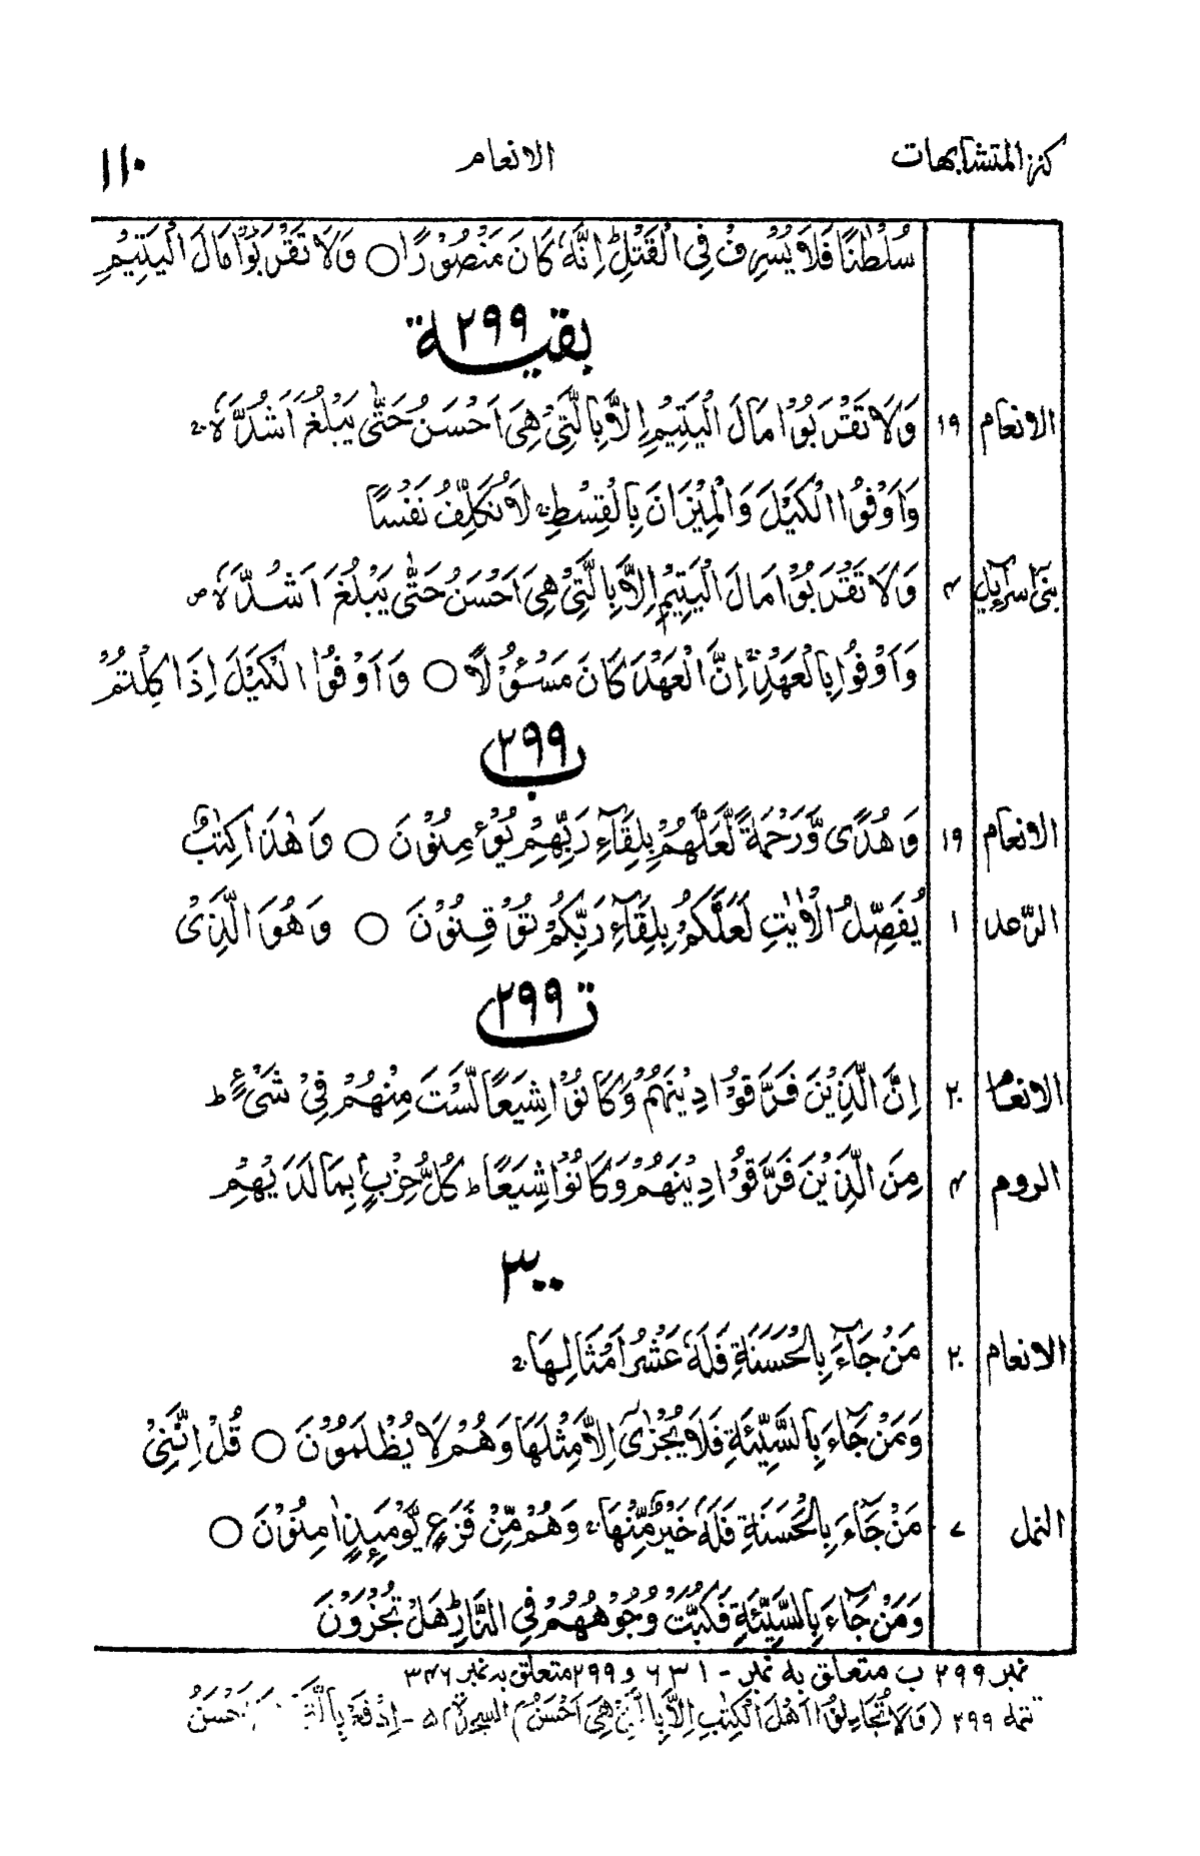 کنز المتشابہات الانعام ۱۱۰
سُلْطٰنًا فَلَا یُسْرِفْ فِی الْقَتْلِ ؕ اِنَّهٗ کَانَ مَنْصُوْرًا ○ وَلَا تَقْرَبُوْا مَالَ الْیَتِیْمِ
بقیة ۲۹۹
الانعام ۱۹ وَلَا تَقْرَبُوْا مَالَ الْیَتِیْمِ اِلَّا بِالَّتِیْ هِیَ اَحْسَنُ حَتّٰی یَبْلُغَ اَشُدَّهٗ ۚ
وَاَوْفُوا الْکَیْلَ وَالْمِیْزَانَ بِالْقِسْطِ ۚ لَا نُکَلِّفُ نَفْسًا
بنیٓ اسرآءیل ۴ وَلَا تَقْرَبُوْا مَالَ الْیَتِیْمِ اِلَّا بِالَّتِیْ هِیَ اَحْسَنُ حَتّٰی یَبْلُغَ اَشُدَّهٗ ۪
وَاَوْفُوْا بِالْعَهْدِ ۚ اِنَّ الْعَهْدَ کَانَ مَسْئُوْلًا ○ وَاَوْفُوا الْکَیْلَ اِذَا کِلْتُمْ
۲۹۹ ب
الانعام ۱۹ وَهُدًی وَّرَحْمَةً لَّعَلَّهُمْ بِلِقَآءِ رَبِّهِمْ یُؤْمِنُوْنَ ○ وَهٰذَا کِتٰبٌ
الرّعد ۱ یُفَصِّلُ الْاٰیٰتِ لَعَلَّکُمْ بِلِقَآءِ رَبِّکُمْ تُوْقِنُوْنَ ○ وَهُوَ الَّذِیْ
۲۹۹ ت
الانعام ۲۰ اِنَّ الَّذِیْنَ فَرَّقُوْا دِیْنَهُمْ وَکَانُوْا شِیَعًا لَّسْتَ مِنْهُمْ فِیْ شَیْءٍ ؕ
الروم ۴ مِنَ الَّذِیْنَ فَرَّقُوْا دِیْنَهُمْ وَکَانُوْا شِیَعًا ؕ کُلُّ حِزْبٍۭ بِمَا لَدَیْهِمْ
۳۰۰
الانعام ۲۰ مَنْ جَآءَ بِالْحَسَنَةِ فَلَهٗ عَشْرُ اَمْثَالِهَا ۚ
وَمَنْ جَآءَ بِالسَّیِّئَةِ فَلَا یُجْزٰۤی اِلَّا مِثْلَهَا وَهُمْ لَا یُظْلَمُوْنَ ○ قُلْ اِنَّنِیْ
النمل ۷ مَنْ جَآءَ بِالْحَسَنَةِ فَلَهٗ خَیْرٌ مِّنْهَا ۚ وَهُمْ مِّنْ فَزَعٍ یَّوْمَئِذٍ اٰمِنُوْنَ ○
وَمَنْ جَآءَ بِالسَّیِّئَةِ فَکُبَّتْ وُجُوْهُهُمْ فِی النَّارِ ؕ هَلْ تُجْزَوْنَ
نمبر ۲۹۹ ب متعلق بہ نمبر - ۶۳۱ و ۲۹۹ متعلق بہ نمبر ۳۴۶
تمہ ۲۹۹ (وَلَا تُجَادِلُوْۤا اَهْلَ الْکِتٰبِ اِلَّا بِالَّتِیْ هِیَ اَحْسَنُ السجدة ۵ - اِدْفَعْ بِالَّتِیْ اَحْسَنُ